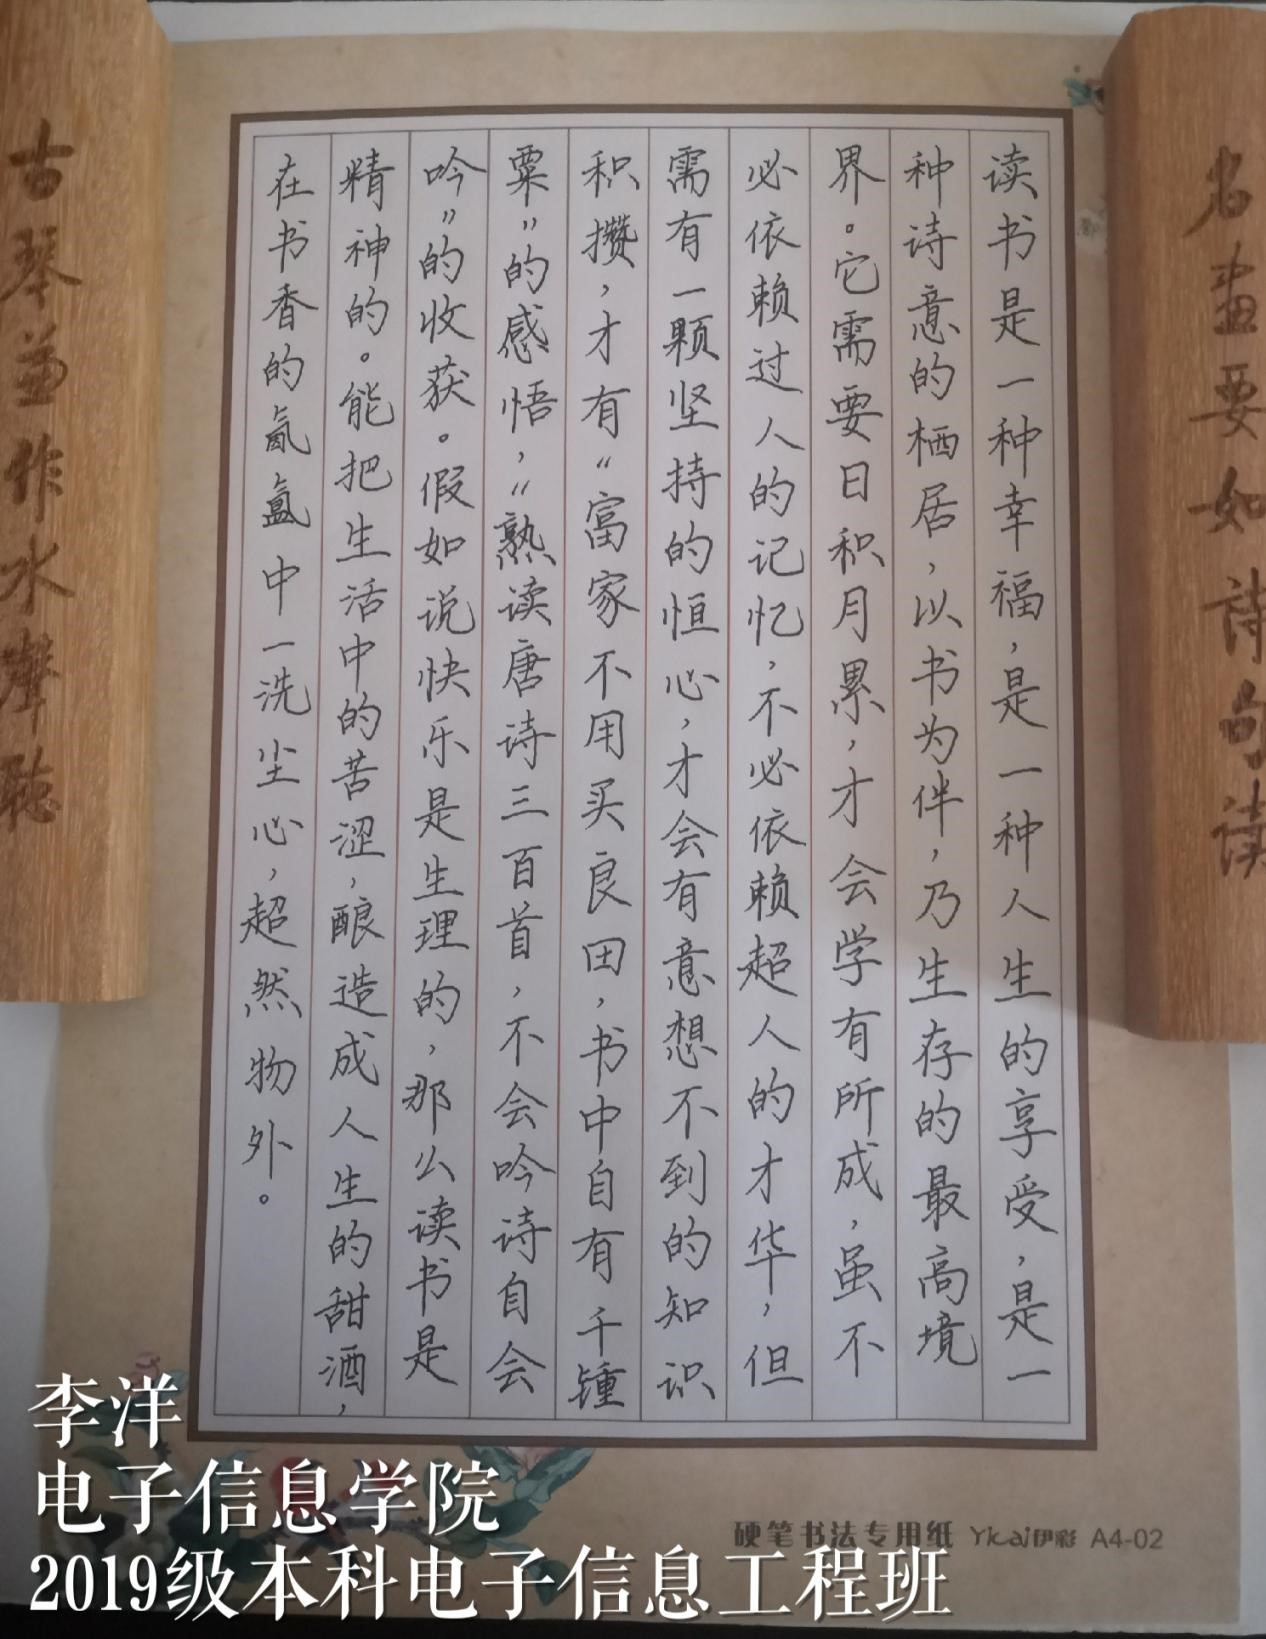 名画要如詩句读
读书是一种幸福，是一种人生的享受，是一
种诗意的栖居，以书为伴，乃生存的最高境
界。它需要日积月累，才会学有所成，虽不
必依赖过人的记忆，不必依赖超人的才华，但
需有一颗坚持的恒心，才会有意想不到的知识
积攒，才有“富家不用买良田，书中自有千锺
粟”的感悟，“熟读唐诗三百首，不会吟诗自会
吟”的收获。假如说快乐是生理的，那么读书是
精神的。能把生活中的苦涩，酿造成人生的甜酒，
在书香的氤氲中一洗尘心，超然物外。
古琴兼作水聲聽
李洋
电子信息学院
2019级本科电子信息工程班
硬笔书法专用纸 Yicai伊彩 A4-02